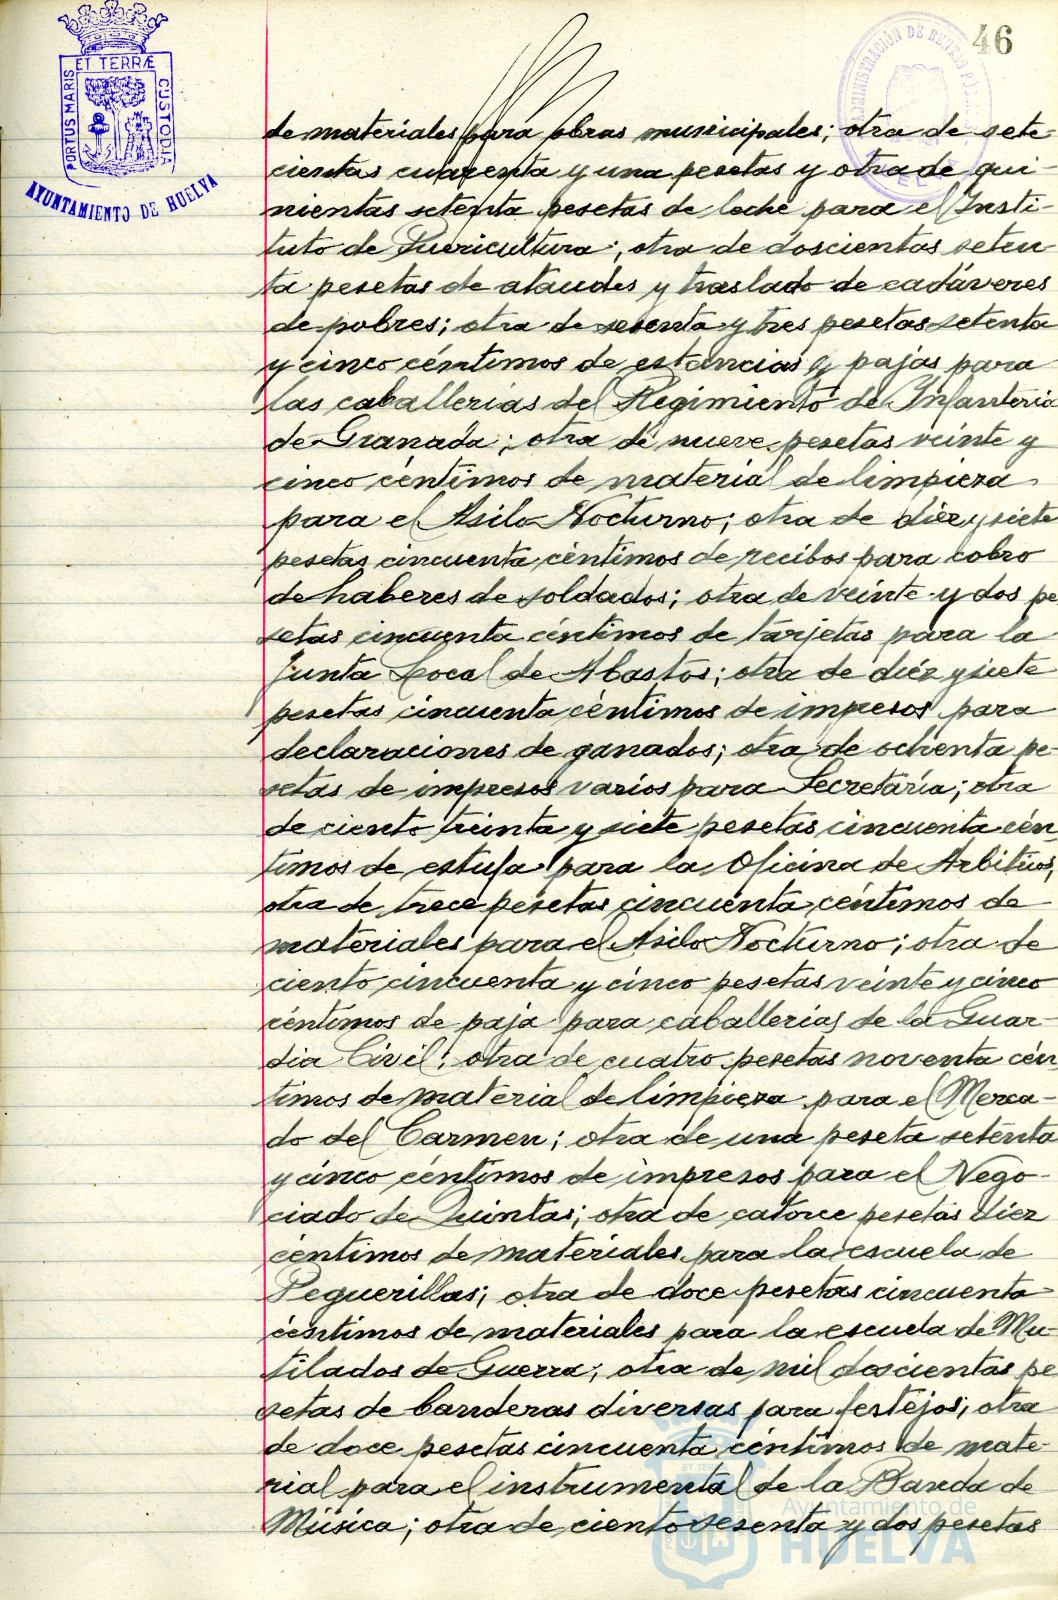 46
ET TERRÆ
PORTUS MARIS
CUSTODIA
AYUNTAMIENTO DE HUELVA
ADMINISTRACIÓN DE RENTAS
de materiales para obras municipales; otra de sete-
cientas cuarenta y una pesetas y otra de qui-
nientas setenta pesetas de leche para el Insti-
tuto de Puericultura; otra de doscientas seten
ta pesetas de ataudes y traslado de cadáveres
de pobres; otra de sesenta y tres pesetas setenta
y cinco céntimos de estancias y pajas para
las caballerias del Regimiento de Infanteria
de Granada; otra de nueve pesetas veinte y
cinco céntimos de material de limpieza
para el Asilo Nocturno; otra de diez y siete
pesetas cincuenta céntimos de recibos para cobro
de haberes de soldados; otra de veinte y dos pe
setas cincuenta céntimos de tarjetas para la
Junta Local de Abastos; otra de diéz y siete
pesetas cincuenta céntimos de impesos para
declaraciones de ganados; otra de ochenta pe-
setas de impresos varios para Secretaría; otra
de ciento treinta y siete pesetas cincuenta cén
timos de estufa para la Oficina de Arbitrios,
otra de trece pesetas cincuenta céntimos de
materiales para el Asilo Nocturno; otra de
ciento cincuenta y cinco pesetas veinte y cinco
céntimos de paja para caballerias de la Guar-
dia Civil; otra de cuatro pesetas noventa cén
timos de material de limpieza para el Merca-
do del Carmen; otra de una peseta setenta
y cinco céntimos de impresos para el Nego-
ciado de Quintas; otra de catorce pesetas diez
céntimos de materiales para la escuela de
Peguerillas; otra de doce pesetas cincuenta
céntimos de materiales para la escuela de Mu-
tilados de Guerra; otra de mil doscientas pe
setas de banderas diversas para festejos; otra
de doce pesetas cincuenta céntimos de mate-
rial para el instrumental de la Banda de
Música; otra de ciento sesenta y dos pesetas
Ayuntamiento de
HUELVA